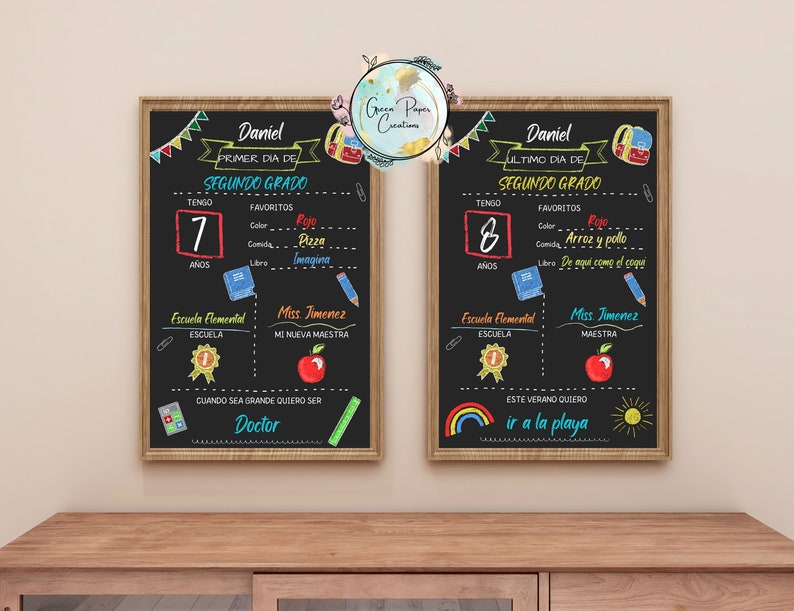 Green Paper
Creations
Daniel
PRIMER DÍA DE
SEGUNDO GRADO
TENGO
7
AÑOS
FAVORITOS
Color Rojo
Comida Pizza
Libro Imagina
Escuela Elemental
ESCUELA
Miss. Jimenez
MI NUEVA MAESTRA
1
CUANDO SEA GRANDE QUIERO SER
Doctor
Daniel
ULTIMO DÍA DE
SEGUNDO GRADO
TENGO
8
AÑOS
FAVORITOS
Color Rojo
Comida Arroz y pollo
Libro De aqui como el coqui
Escuela Elemental
ESCUELA
Miss. Jimenez
MAESTRA
1
ESTE VERANO QUIERO
ir a la playa